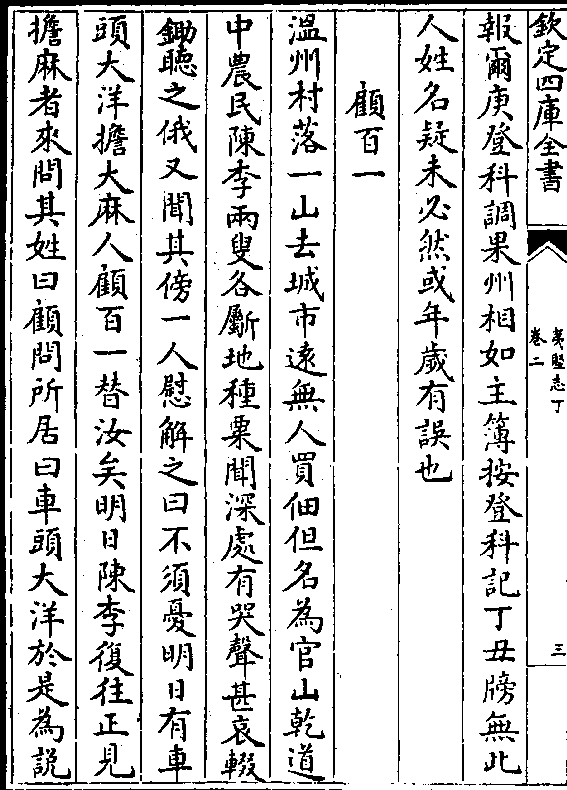 欽定四庫全書
夷堅志丁
卷二
三
報爾庚登科調果州相如主簿按登科記丁丑牓無此
人姓名疑未必然或年歲有誤也
顧百一
溫州村落一山去城市遠無人買佃但名為官山乾道
中農民陳李兩叟各斸地種粟聞深處有哭聲甚哀輟
鋤聽之俄又聞其傍一人慰解之曰不須憂明日有車
頭大洋擔大麻人顧百一替汝矣明日陳李復往正見
擔麻者來問其姓曰顧問所居曰車頭大洋於是為説